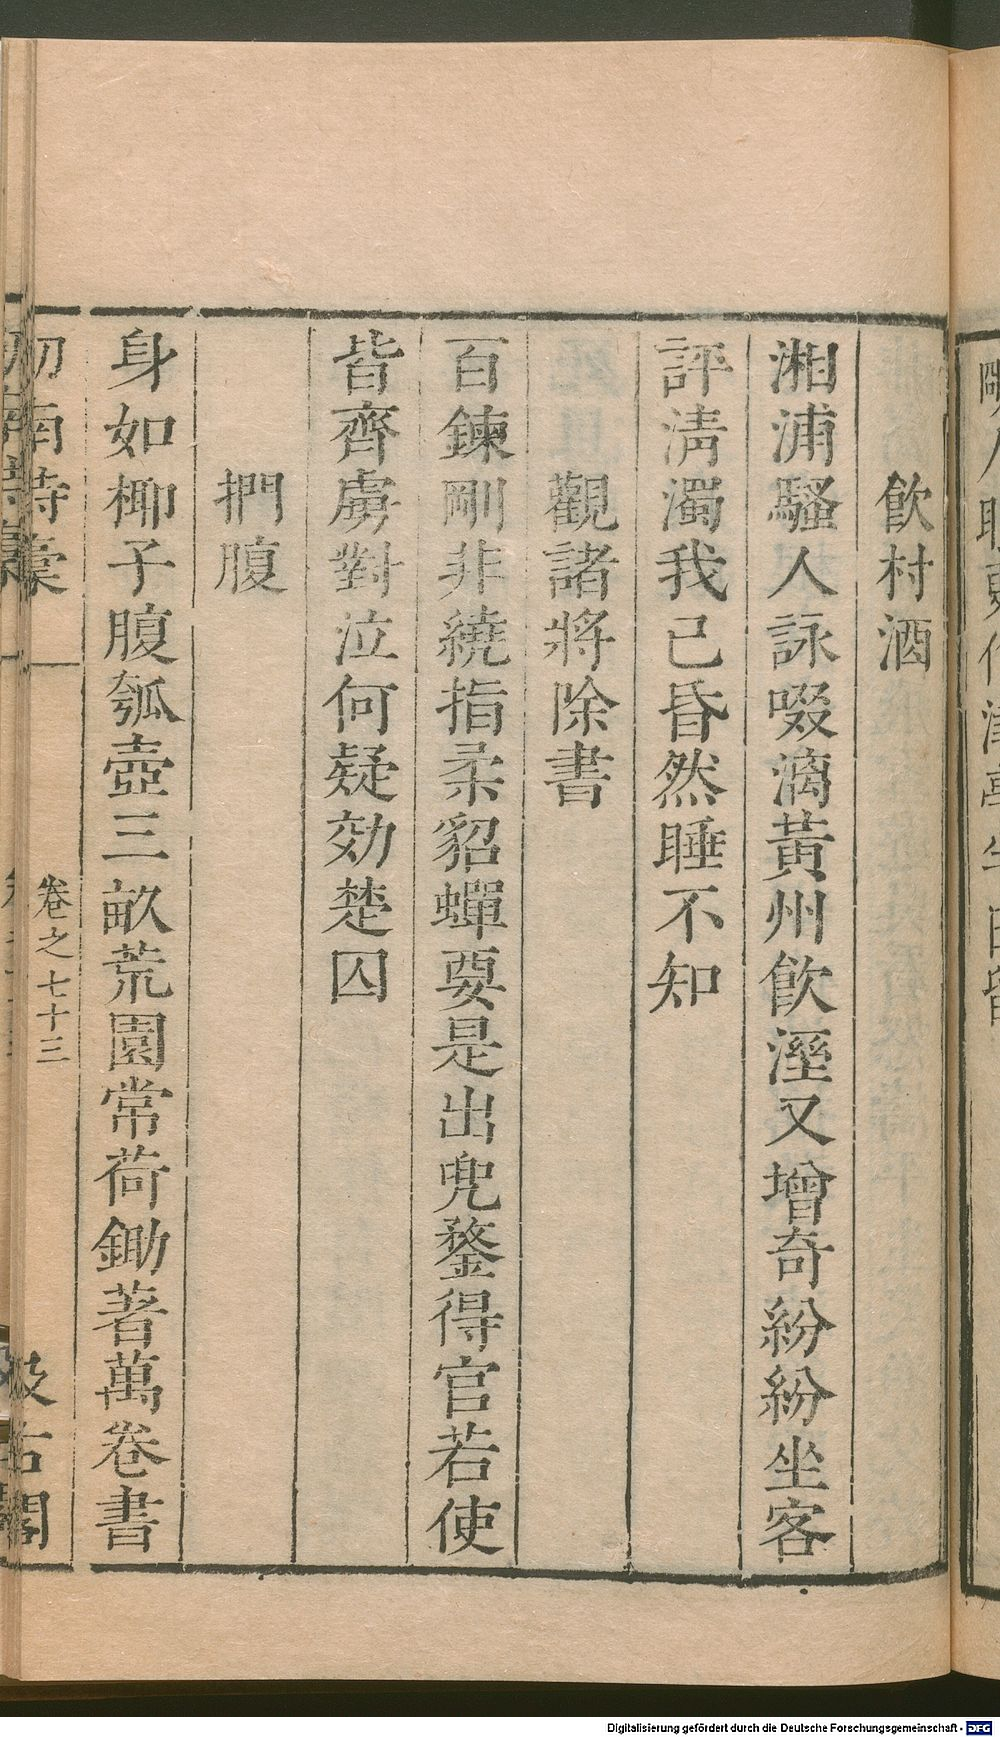 飲村酒
湘浦騷人詠啜漓黃州飲溼又增奇紛紛坐客
評淸濁我已昏然睡不知
觀諸將除書
百鍊剛非繞指柔貂蟬要是出兜鍪得官若使
皆齊虜對泣何疑効楚囚
捫腹
身如椰子腹瓠壺三畝荒園常荷鋤著萬卷書
劒南詩稾
卷之七十三
汲古閣
Digitalisierung gefördert durch die Deutsche Forschungsgemeinschaft - DFG